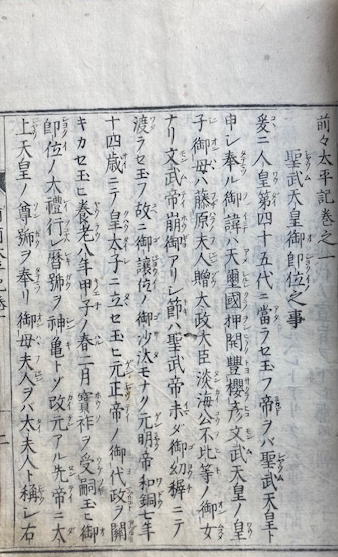 前々太平記巻之一
聖武天皇御即位之事
爰ニ人皇第四十五代ニ當ラセ玉フ帝ヲバ聖武天皇ト
申シ奉ル御諱ハ天璽國押開豐櫻彦文武天皇ノ皇
子御母ハ藤原夫人贈太政大臣淡海公不比等ノ御女
ナリ文武帝崩御アリシ節ハ聖武帝未ダ御幼稺ニテ
渡ラセ玉フ故ニ御讓位ノ御沙汰モナク元明帝和銅七年
十四歳ニテ皇太子ニ立セ玉ヒ元正帝ノ御代政ヲ關
キカセ玉ヒ養老八年甲子ノ春二月寳祚ヲ受嗣玉ヒ御
即位ノ大禮行レ暦號ヲ神亀トゾ改元アル先帝ニ太
上天皇ノ尊號ヲ奉リ御母夫人ヲバ太夫人ト稱シ右